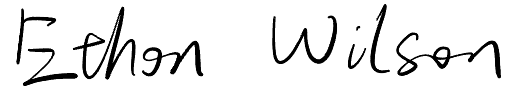 Ethon Wilson